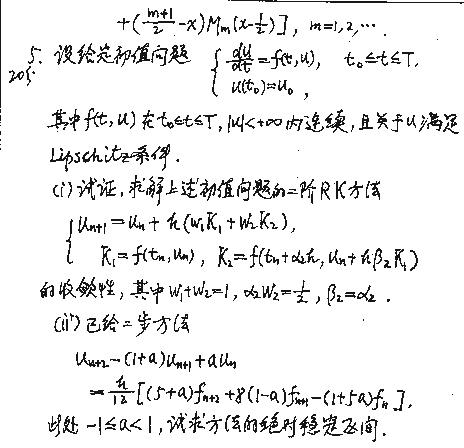 +(\frac{m+1}{2}-x)M_m(x-\frac{1}{2})], m=1,2,….
5. 设给定初值问题 { \frac{du}{dt}=f(t,u), t_0≤t≤T,
20分 u(t_0)=u_0,
其中f(t,u)在t_0≤t≤T, |u|<+∞内连续,且关于u满足
Lipschitz条件.
(i)试证,求解上述初值问题的二阶RK方法
{ u_{n+1}=u_n+h(w_1K_1+w_2K_2),
K_1=f(t_n,u_n), K_2=f(t_n+α_2h,u_n+hβ_2K_1)
的收敛性,其中w_1+w_2=1, α_2w_2=\frac{1}{2}, β_2=α_2.
(ii)已给二步方法
u_{n+2}-(1+a)u_{n+1}+au_n
=\frac{h}{12}[(5+a)f_{n+2}+8(1-a)f_{n+1}-(1+5a)f_n],
此处 -1≤a<1,试求方法的绝对稳定区间.